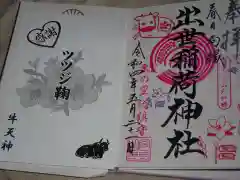 奉拝
春日局
出世稲荷神社
令和四年五月二十一日
感謝
ツツジ鞠
牛天神